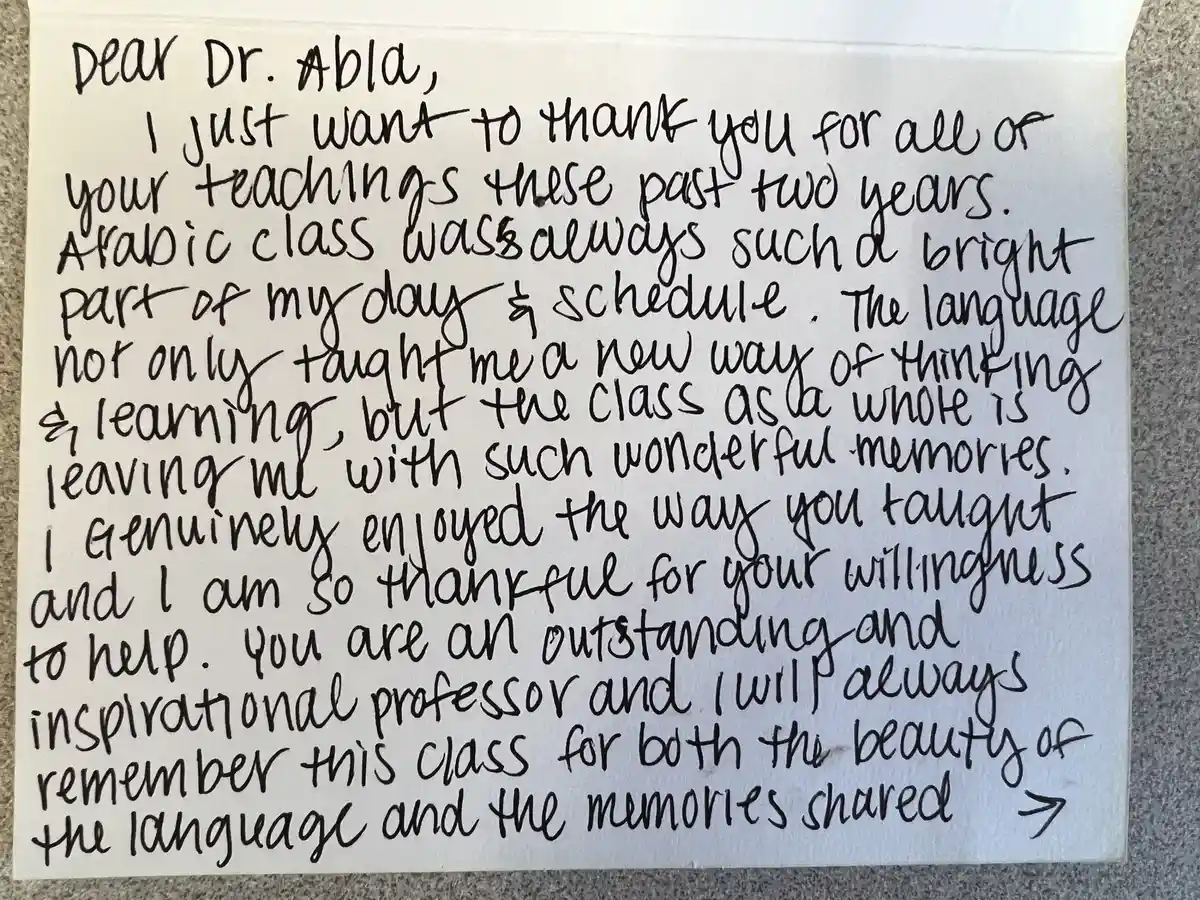 Dear Dr. Abla,
I just want to thank you for all of
your teachings these past two years.
Arabic class was always such a bright
part of my day & schedule. The language
not only taught me a new way of thinking
& learning, but the class as a whole is
leaving me with such wonderful memories.
I Genuinely enjoyed the way you taught
and I am so thankful for your willingness
to help. You are an outstanding and
inspirational professor and I will always
remember this class for both the beauty of
the language and the memories shared →